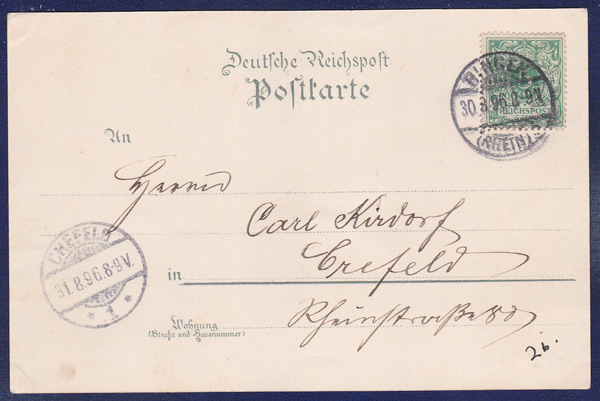 Deutsche Reichspost
Postkarte
BINGEN
30.8.96.8-9V.
(RHEIN)
REICHSPOST
An
Herrn
Carl Kirdorf
CREFELD
31.8.96.8-9V.
* 1 *
in Crefeld
Wohnung
(Straße und Hausnummer)
Rheinstraße 80
26.